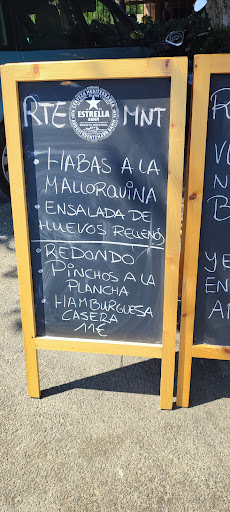 RTE ESTRELLA DAMM MNT
• HABAS A LA
MALLORQUINA
• ENSALADA DE
HUEVOS RELLENOS
• REDONDO
PINCHOS A LA
PLANCHA
HAMBURGUESA
CASERA
11€